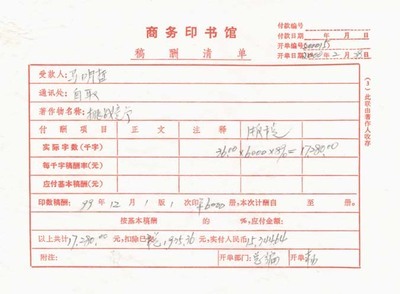 商务印书馆
稿酬清单
付款编号
付款日期 年 月 日
开单编号
开单日期 年 2 月 日
受款人：马明哲
通讯处：自取
著作物名称：挑战
付酬项目 正文 注释 版税
实际字数(千字) 36.00×6000×8%=17280.00
每千字稿酬率(元)
应付基本稿酬(元)
印数稿酬：99 年 12 月 1 版 1 次印 6000 册，本次计酬自 至 册。
按基本稿酬 的 %，应付金额：
以上共计17,280.00元，扣除已税1,935.36元，实付人民币15,344.64
附注： 开单部门：总编 开单
(3)此联由著作人收存